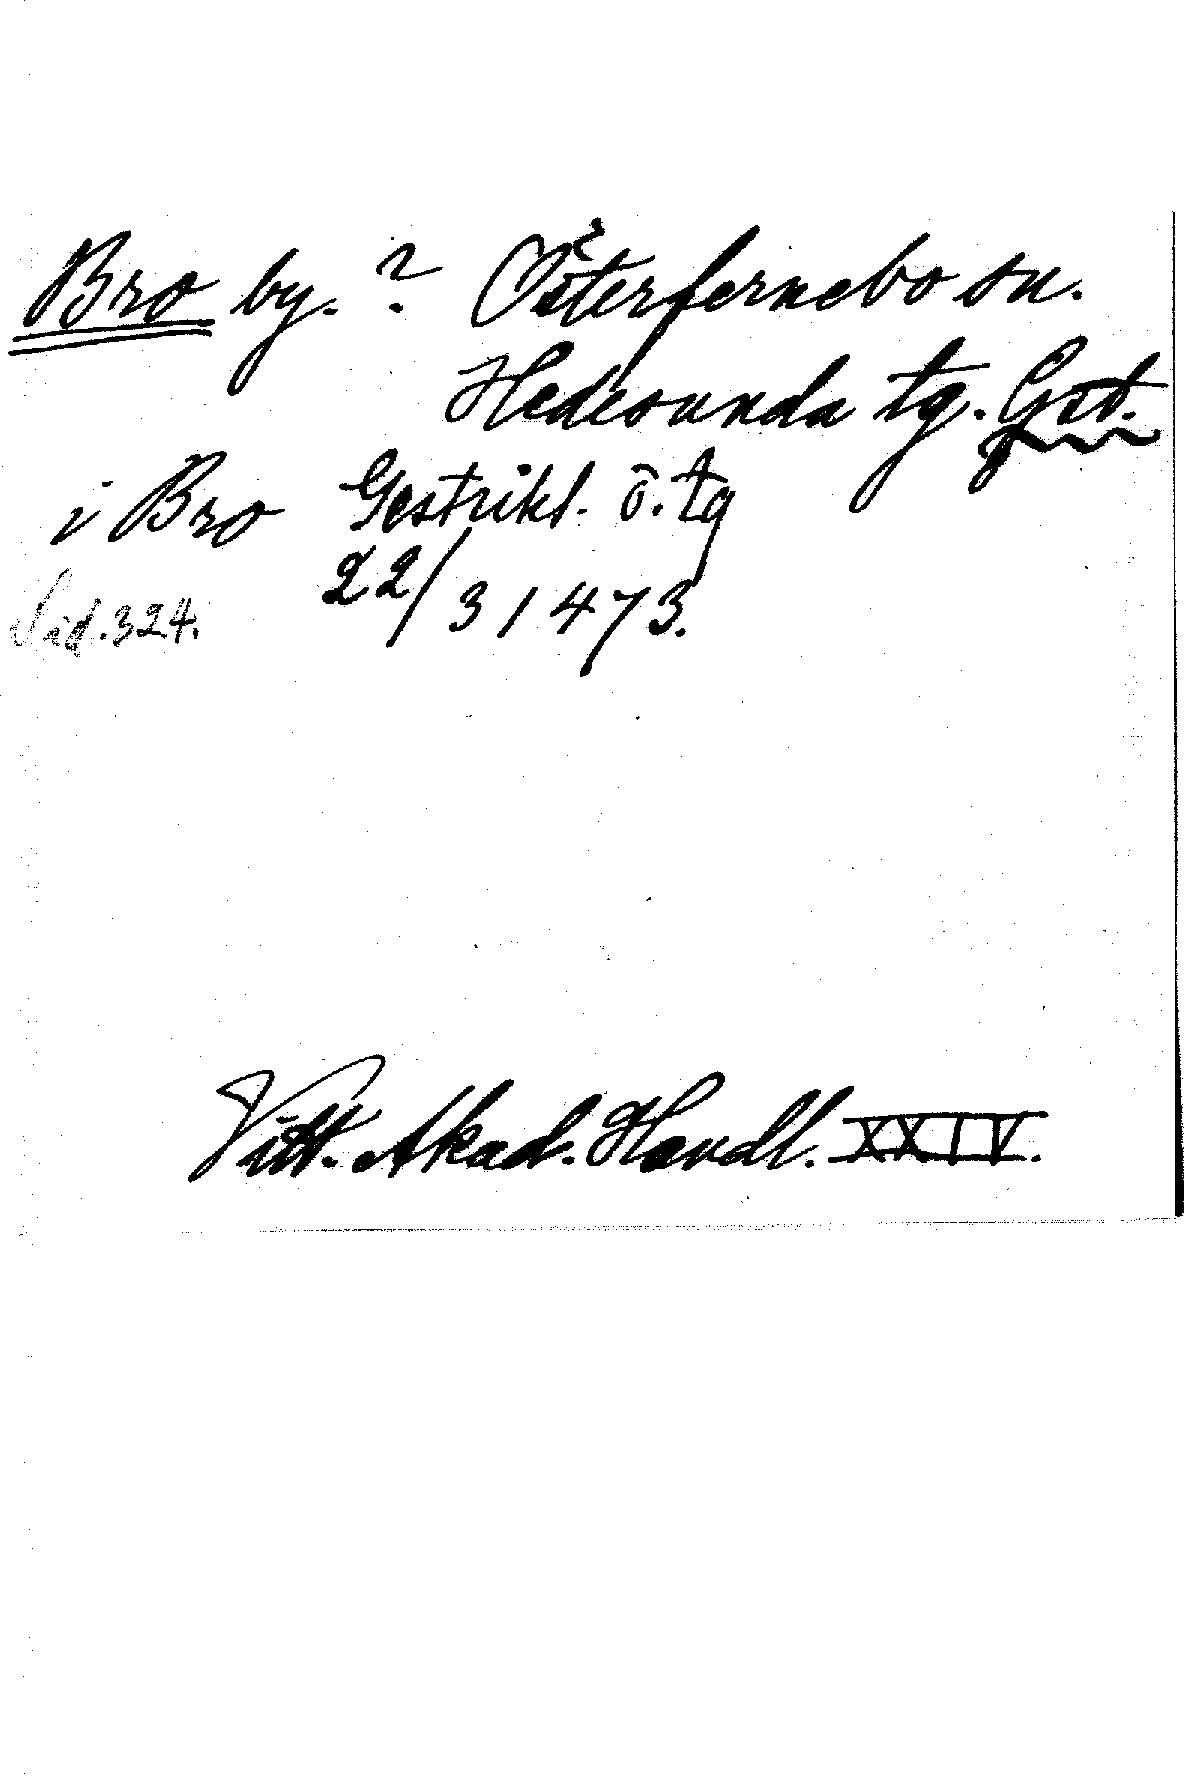 Bro by. ? Österfernebo sn.
Hedesunda tg. Gst.
i Bro Gestrikl. ö. tg
22/3 1473.
Sid. 324.
Vitt. Akad. Handl. XXIV.